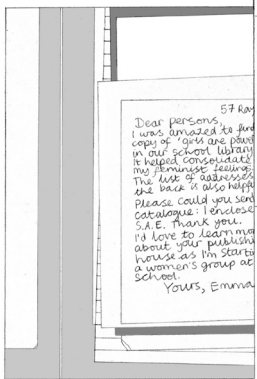 57 Ray
Dear persons,
I was amazed to find
copy of 'girls are powe
in our school library
It helped consolidate
my feminist feeling
The list of addresses
the back is also helpfu
Please could you send
catalogue: I enclose
S.A.E. Thank you.
I'd love to learn mo
about your publish
house as I'm starti
a women's group at
school.
Yours, Emma